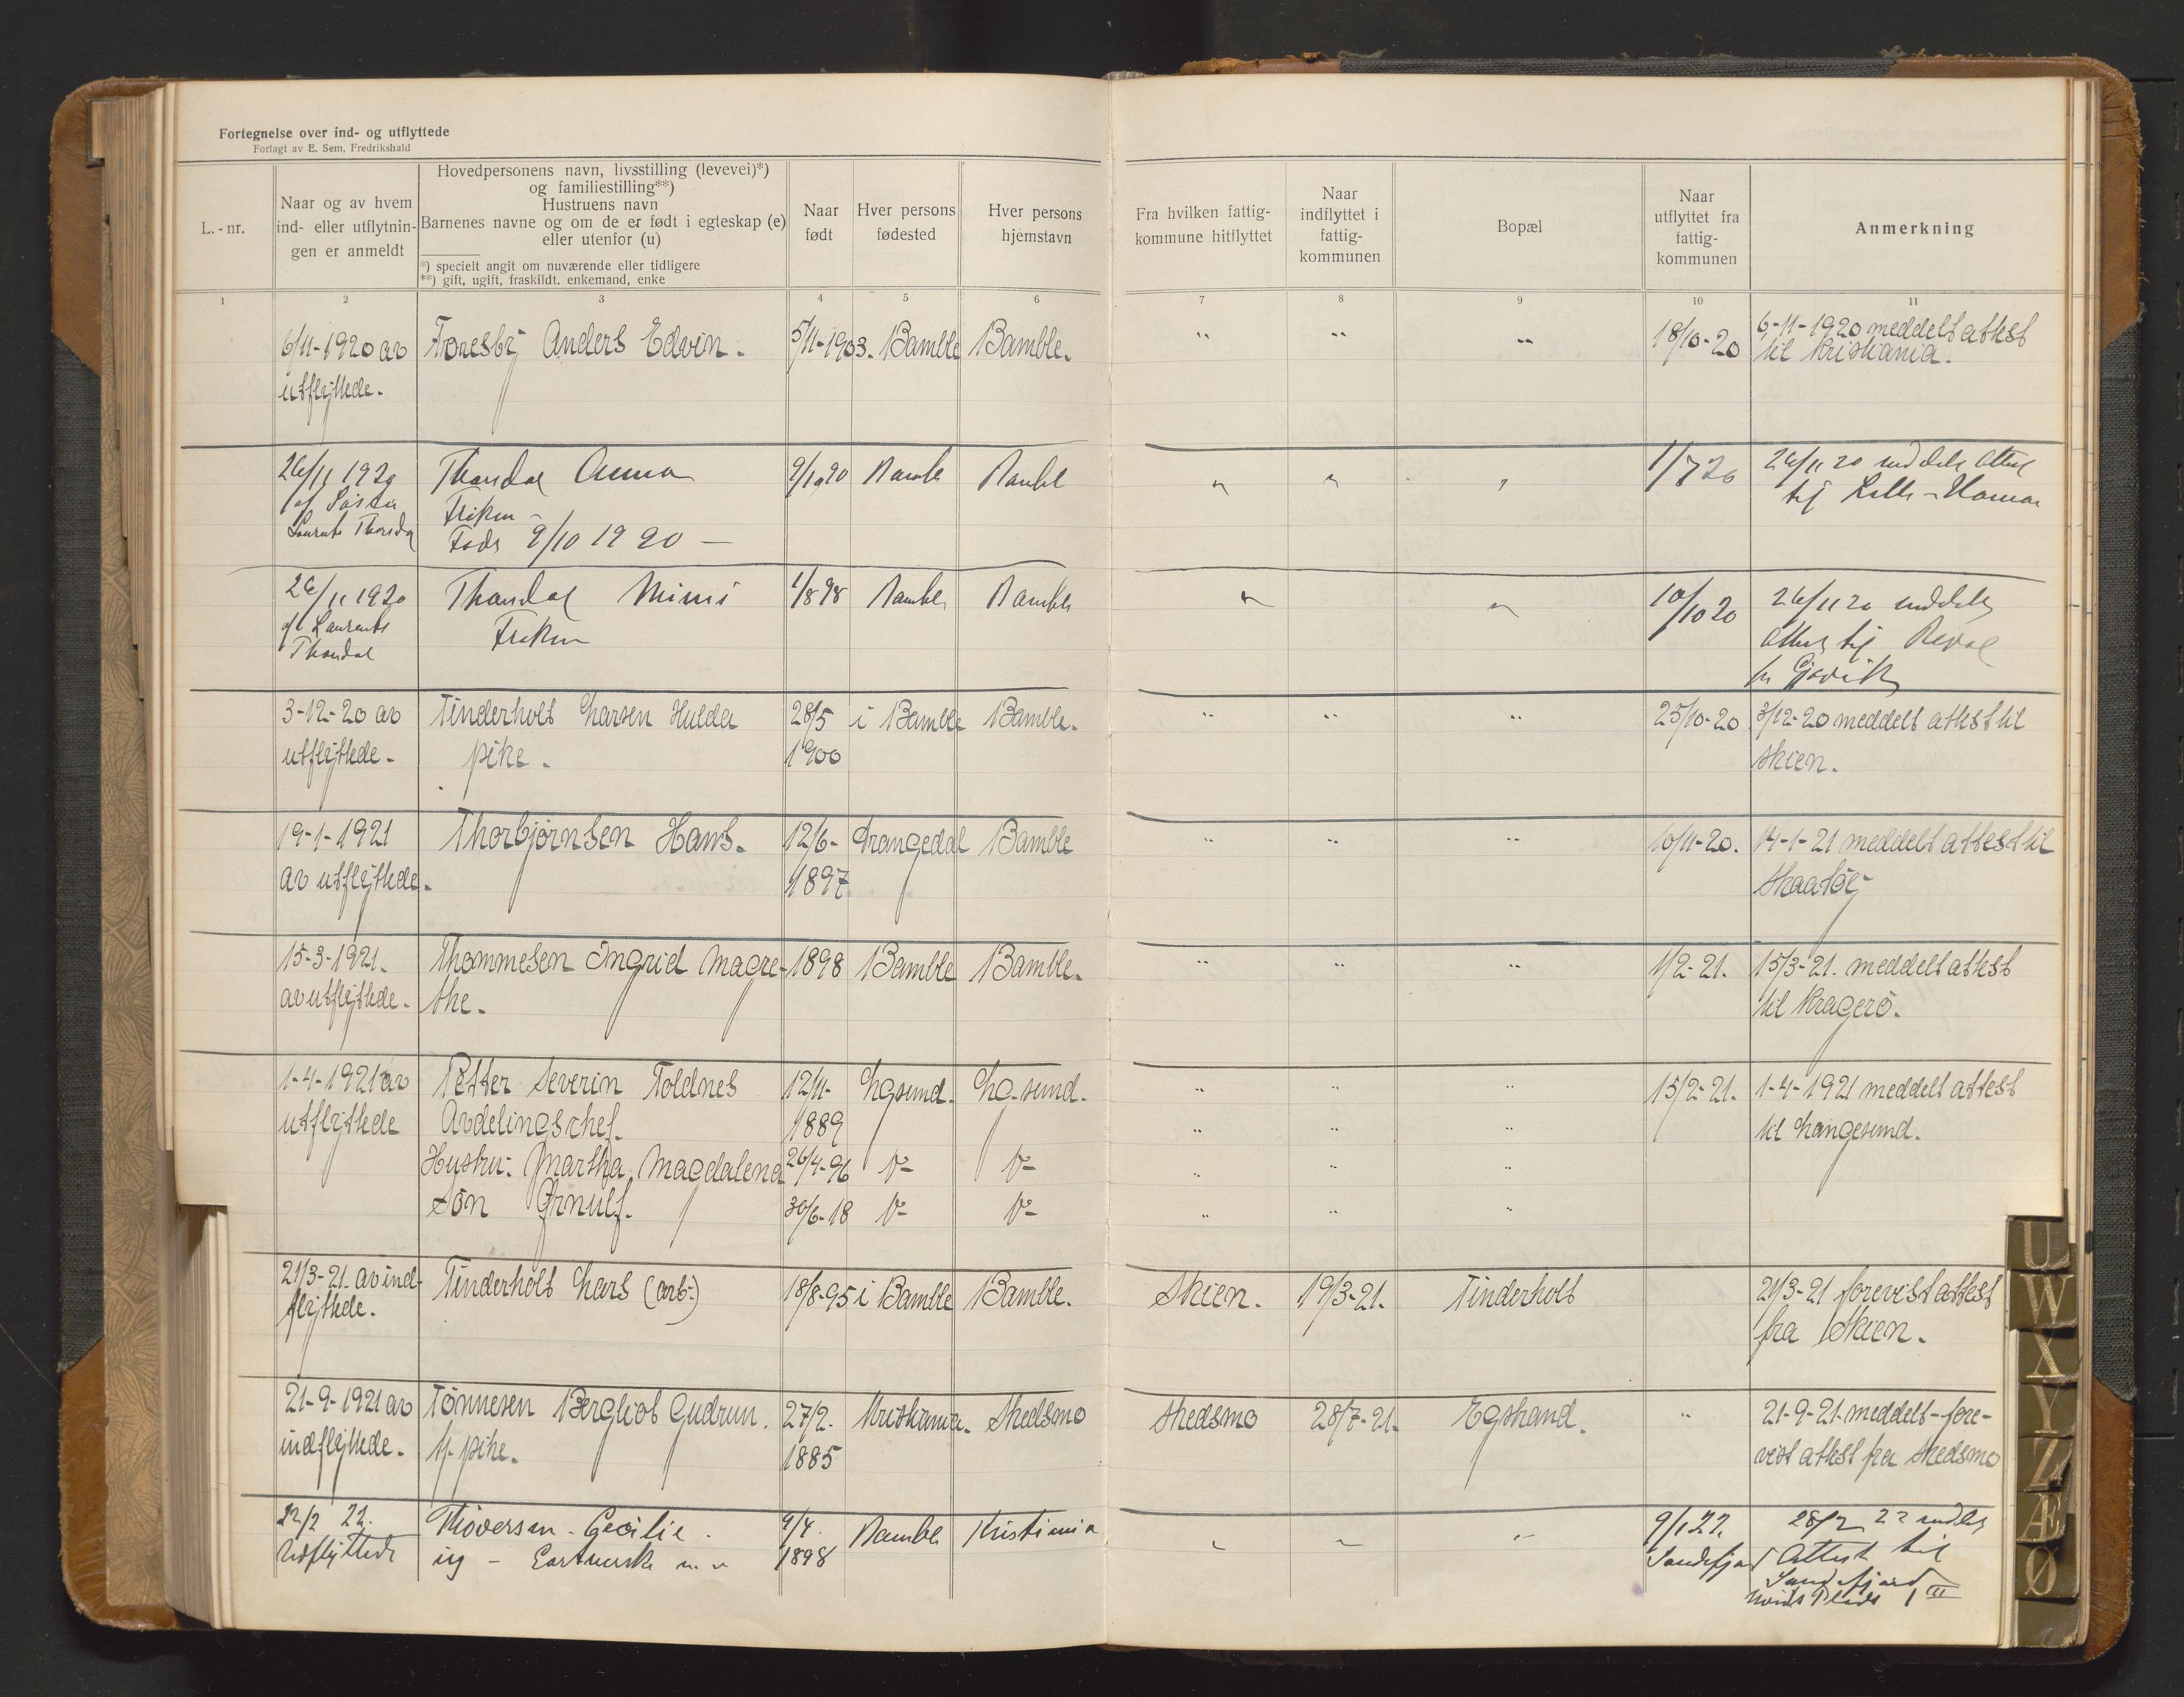 Fortegnelse over ind- og utflyttede
Forlagt av E. Sem, Fredrikshald
L.-nr.
Naar og av hvem
ind- eller utflytnin-
gen er anmeldt
Hovedpersonens navn, livsstilling (levevei)*)
og familiestilling**)
Hustruens navn
Barnenes navne og om de er født i egteskap (e)
eller utenfor (u)
*) specielt angit om nuværende eller tidligere
**) gift, ugift, fraskildt. enkemand, enke
Naar
født
Hver persons
fødested
Hver persons
hjemstavn
Fra hvilken fattig-
kommune hitflyttet
Naar
indflyttet i
fattig-
kommunen
Bopæl
Naar
utflyttet fra
fattig-
kommunen
Anmerkning
1 2 3 4 5 6 7 8 9 10 11
6/11-1920 av Toresby Anders Edvin. 5/11-1903. Bamble Bamble. " " " 18/10-20 6-11-1920 meddelt attest
utflyttede. til Kristiania.
26/11 1920 Thorsdal Anna Bamble Bamble " " " 1/7 20 26/11 20 meddelt Attest
af Søster Frøken - til Lille-Hamar
Laurents Thorsdal Født 9/10 1920 —
26/11 1920 Thorsdal Mimi 1/8 98 Bamble Bamble " " 10/10 20 26/11 20 meddelt
af Laurents Frøken Attest til
Thorsdal Gjøvik
3-12-20 av Tinderholt Larsen Hulda 28/5 i Bamble Bamble. " " " 25/10-20 3/12-20 meddelt attest til
utflyttede. pike. 1900 Skien.
19-1-1921 Thorbjørnsen Hans. 12/6- Drangedal Bamble " " " 10/11-20. 14-1-21 meddelt attest til
av utflyttede. 1897 Skaatøy
15-3-1921. Thommesen Ingrid Magre- 1898 Bamble Bamble. " " " 1/2-21. 15/3-21. meddelt attest
av utflyttede. the. til Kragerö.
1-4-1921 av Petter Severin Toldnes 12/11- Lgsund. Lg.sund. " " " 15/2-21. 1-4-1921 meddelt attest
utflyttede Avdelingschef. 1889 " " " til Langesund.
Hustru: Martha Magdalena 26/4-96 " " "
Sön Ørnulf. 30/6-18 " " "
21/3-21. av ind- Tinderholt Lars (arb.) 18/8-95 i Bamble Bamble. Skien. 19/3-21. Tinderholt 21/3-21 forevist attest
flyttede. fra Skien.
21-9-1921 av Tönnesen Bergliot Gudrun. 27/2. Kristiania. Skedsmo Skedsmo 28/7-21. Egstrand. " 21-9-21. meddelt-fore-
indflyttede. tj. pike. 1885 vist attest fra Skedsmo
22/2 22. Cecilie. 9/4. Bamble Kristiania " " " 9/1 22. 28/2 22 meddelt
Udflyttede ug - 1898 Sandefjord Attest til
Sandefjord
Plads 1 III
U
W
X
Y
Z
Æ
Ø